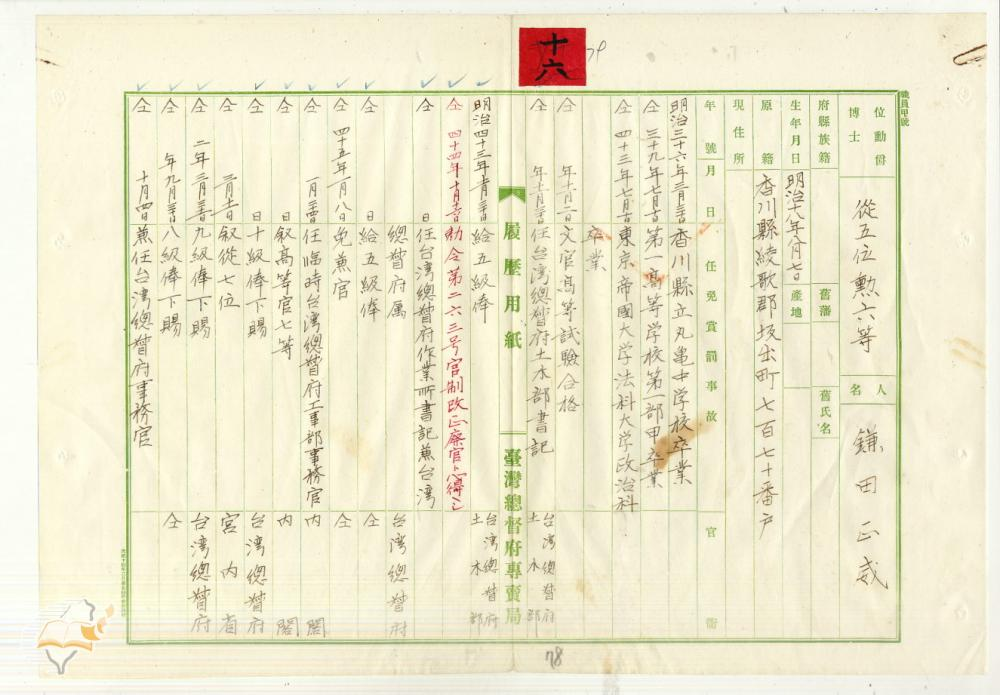 十六
79
職員甲號
位勳爵
博士
從五位勲六等
人名
鎌田正威
府縣族籍
舊藩
舊氏名
生年月日
明治十八年八月七日
產地
原籍
香川縣綾歌郡坂出町七百七十番戶
現住所
年號月日
任免賞罰事故
官衙
明治三十六年三月三十日 香川縣立丸亀中学校卒業
仝 三十九年七月一日 第一高等学校第一部甲卒業
仝 四十三年七月十一日 東京帝國大学法科大学政治科
卒業
仝 年十一月二日 文官高等試驗合格
仝 年十一月三十日 任台湾總督府土木部書記 台湾總督府土木部
履歷用紙
臺灣總督府專賣局
明治四十三年十一月三十日 給五級俸 台湾總督府土木部
仝 四十四年十月十六日 勅令第二六三号官制改正廃官ト心得ヘシ
仝 日 任台湾總督府作業所書記兼台湾
總督府属 台湾總督府
仝 日 給五級俸 仝
仝 四十五年一月八日 免兼官 仝
仝 一月三十日 任臨時台湾總督府工事部事務官 内閣
仝 日 叙高等官七等 内閣
仝 日 十級俸下賜 台湾總督府
仝 三月十一日 叙従七位 宮内省
仝 二年三月三十日 九級俸下賜 台湾總督府
仝 年九月三十日 八級俸下賜 仝
仝 十月四日 兼任台湾總督府事務官
78